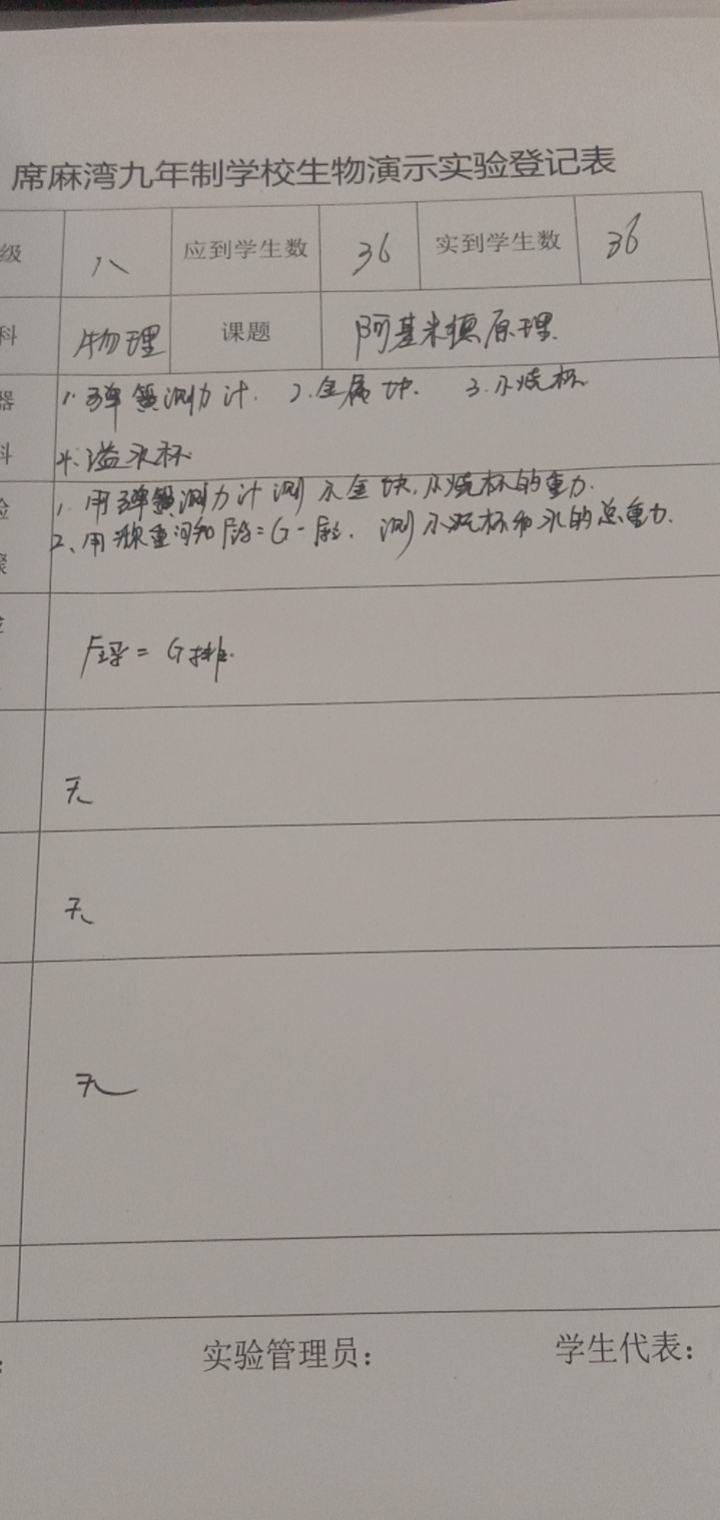 席麻湾九年制学校生物演示实验登记表
级 八 应到学生数 36 实到学生数 36
科 物理 课题 阿基米德原理.
器 1. 弹簧测力计. 2. 金属块. 3. 小烧杯
料 4. 溢水杯
1. 用弹簧测力计测小金块, 小烧杯的重力.
2、用称重 知F浮=G-F拉. 测小烧杯和水的总重力.
F浮 = G排.
无
无
无
实验管理员: 学生代表: